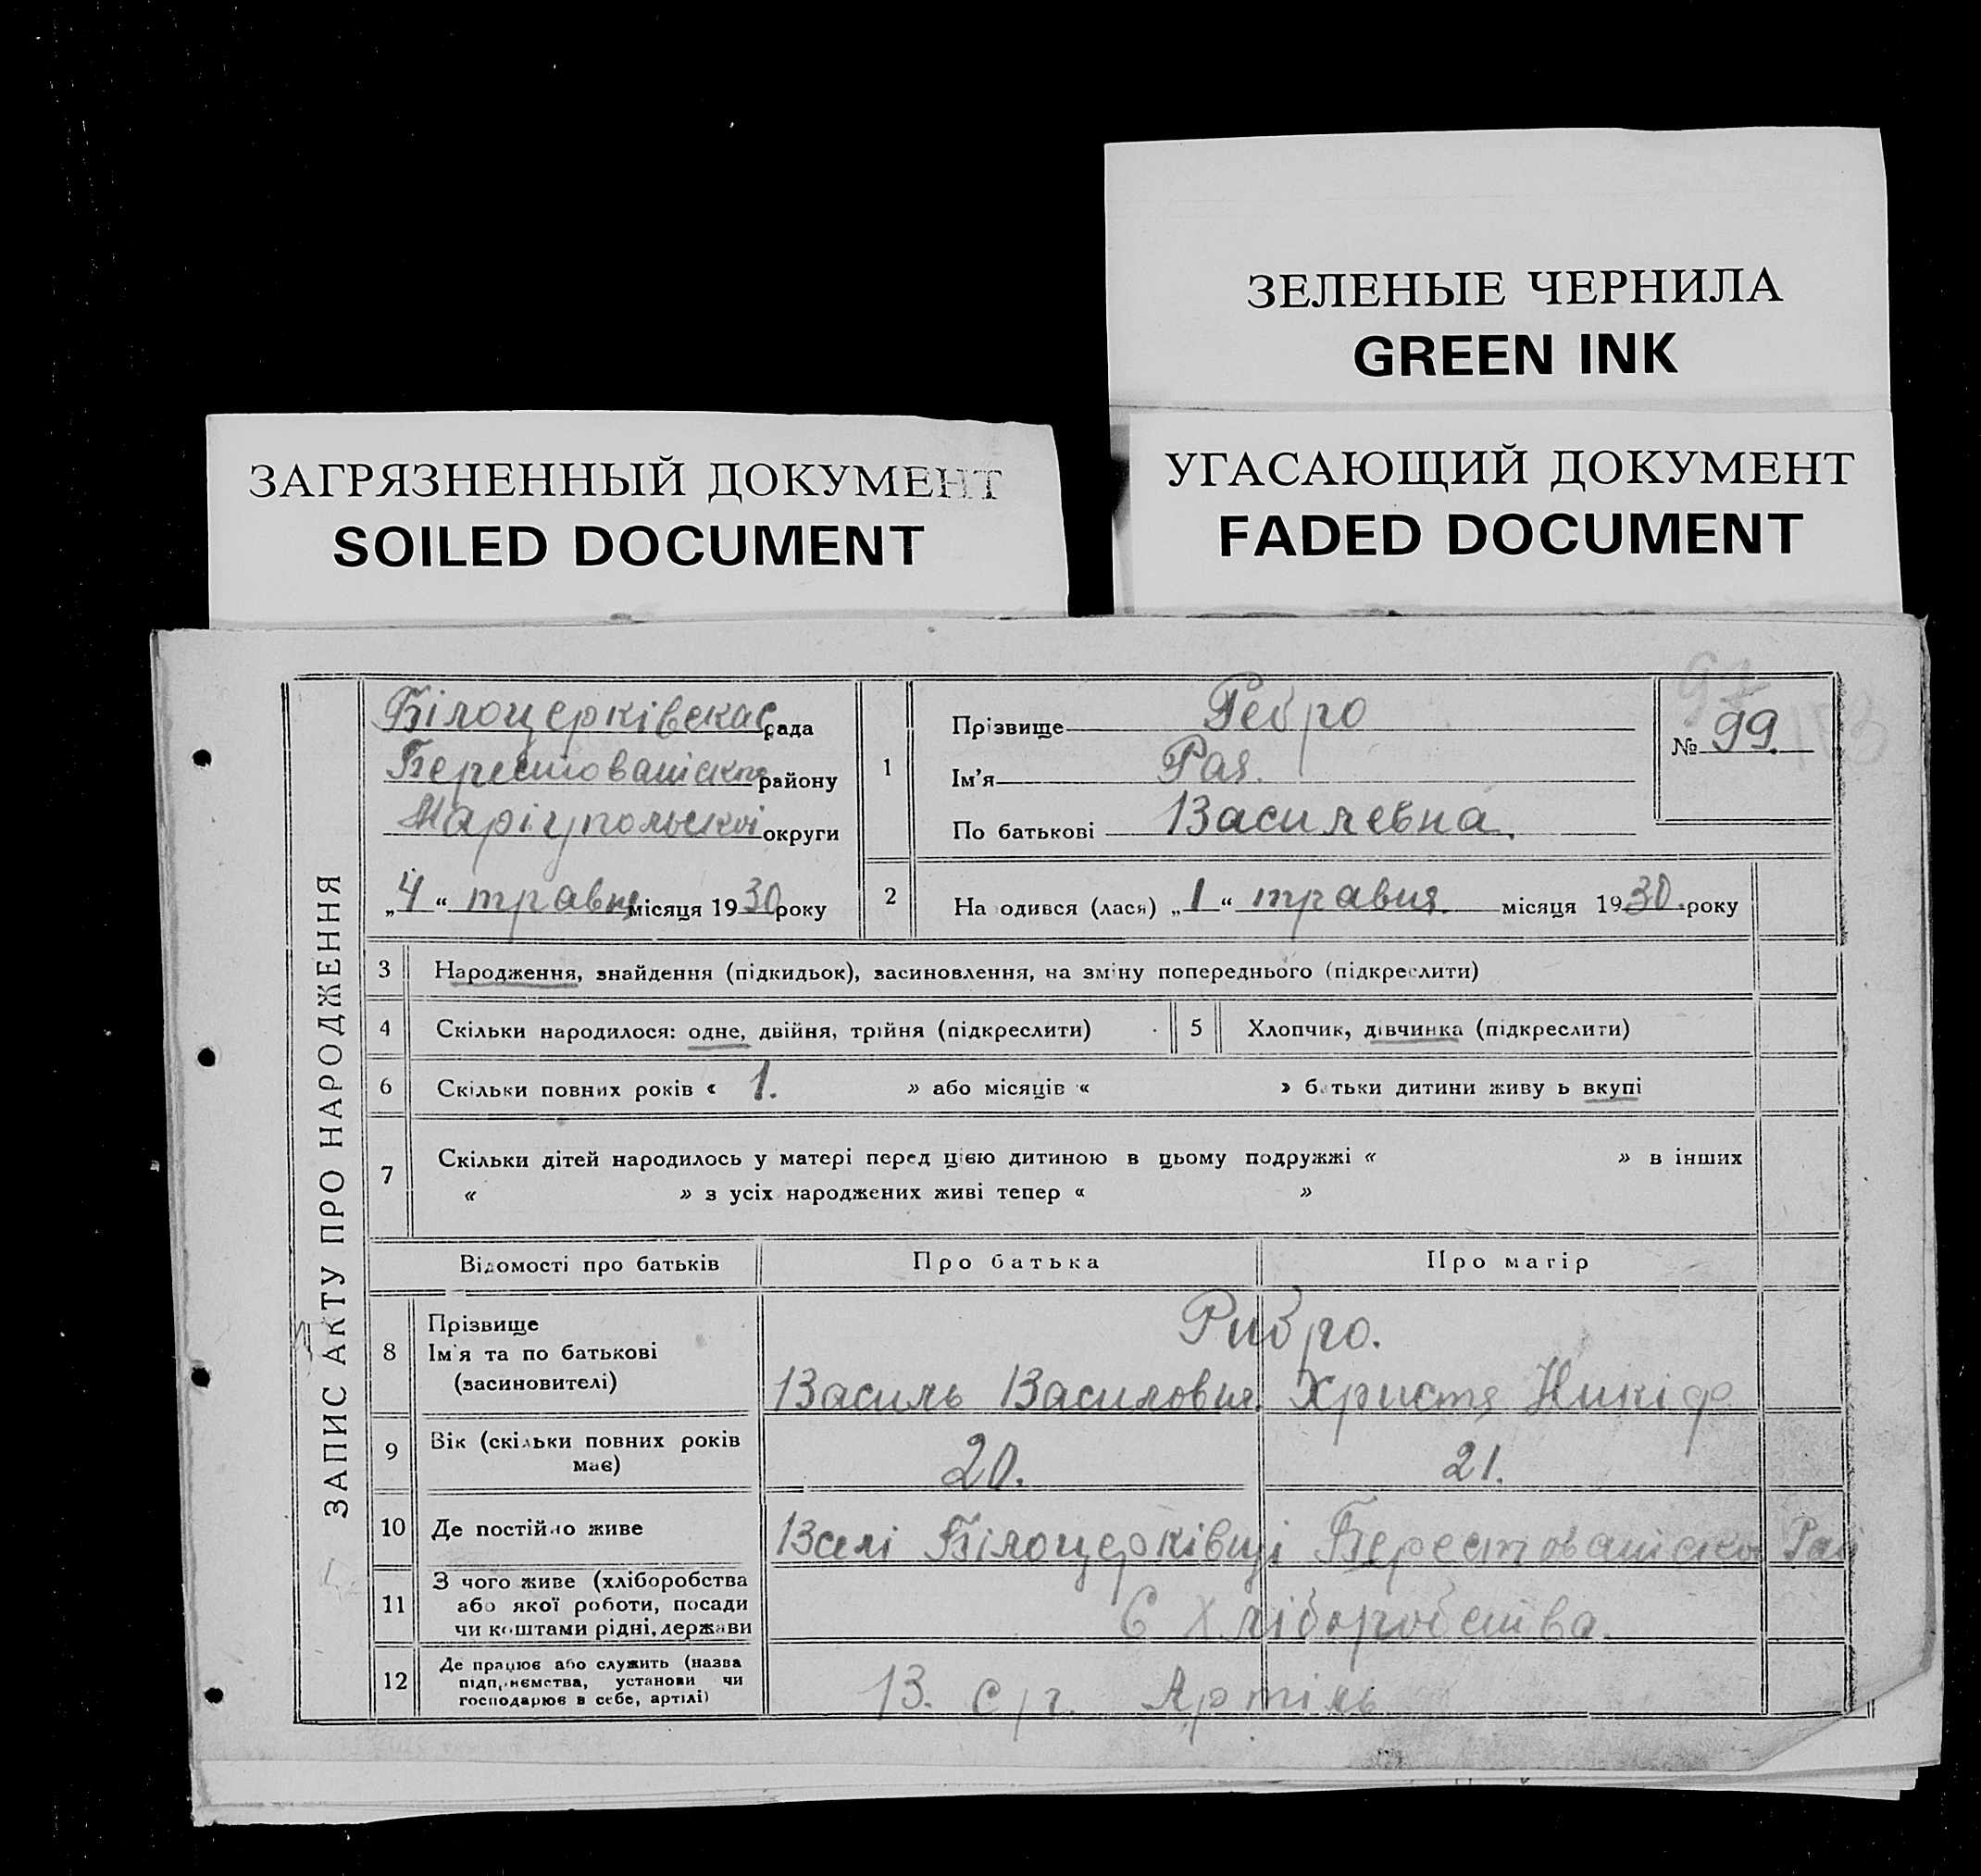 ЗЕЛЕНЫЕ ЧЕРНИЛА
GREEN INK
ЗАГРЯЗНЕННЫЙ ДОКУМЕНТ
SOILED DOCUMENT
УГАСАЮЩИЙ ДОКУМЕНТ
FADED DOCUMENT
ЗАПИС АКТУ ПРО НАРОДЖЕННЯ
Білоцерківская рада
Берестованіско району
Маріупольскої округи
„4“ травня місяця 1930 року
1
Прізвище Ребро
Ім'я Рая.
По батькові Василевна.
№ 99.
2 На одився (лася) „1“ травня місяця 1930. року
3 Народження, знайдення (підкидьок), засиновлення, на зміну попереднього (підкреслити)
4 Скільки народилося: одне, двійня, трійня (підкреслити)
5 Хлопчик, дівчинка (підкреслити)
6 Скільки повних років « 1. » або місяців « » батьки дитини живу ь вкупі
7 Скільки дітей народилось у матері перед цією дитиною в цьому подружжі « » в інших
« » з усіх народжених живі тепер « »
Відомості про батьків Про батька Про матір
8 Прізвище Рибро.
Ім'я та по батькові
(засиновителі) Василь Василовия. Христя Никіф
9 Вік (скільки повних років має) 20. 21.
10 Де постійно живе В селі Білоцерківці Берестованіско Рай
11 З чого живе (хліборобства
або якої роботи, посади
чи коштами рідні, держави
Є Хліборобства.
12 Де працює або служить (назва
підприємства, установи чи
господарює в себе, артілі)
В. с/г. Артіль